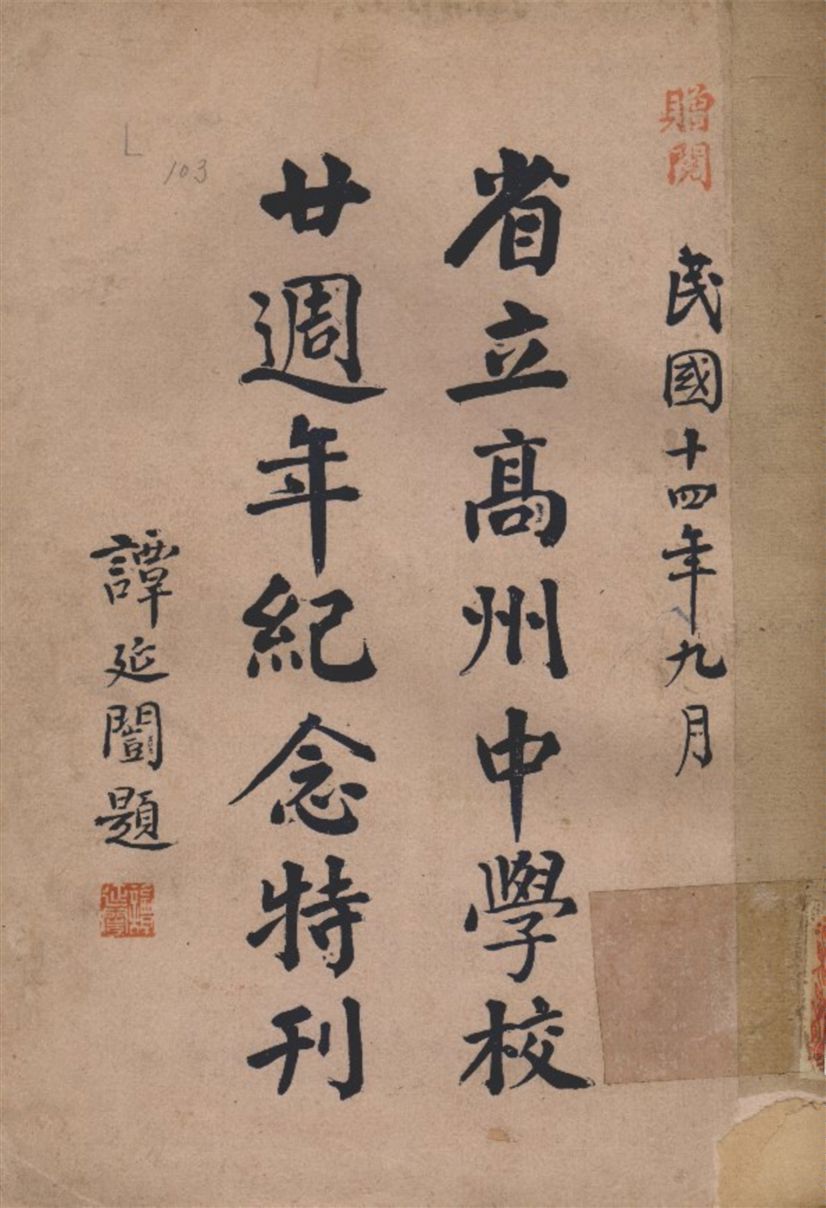 贈閱
民國十四年九月
省立高州中學校
廿週年紀念特刊
譚延闓題
L
103